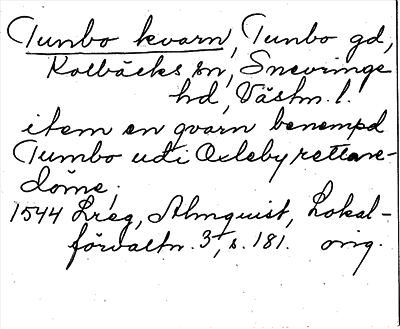 Tunbo kvarn, Tunbo gd,
Kolbäcks sn, Snevringe
hd, Västm. l.
item en qvarn benempd
Tumbo udi Oxleby rettare-
döme,
1544 Lreg, Almquist, Lokal-
förvaltn. 3, s. 181. orig.